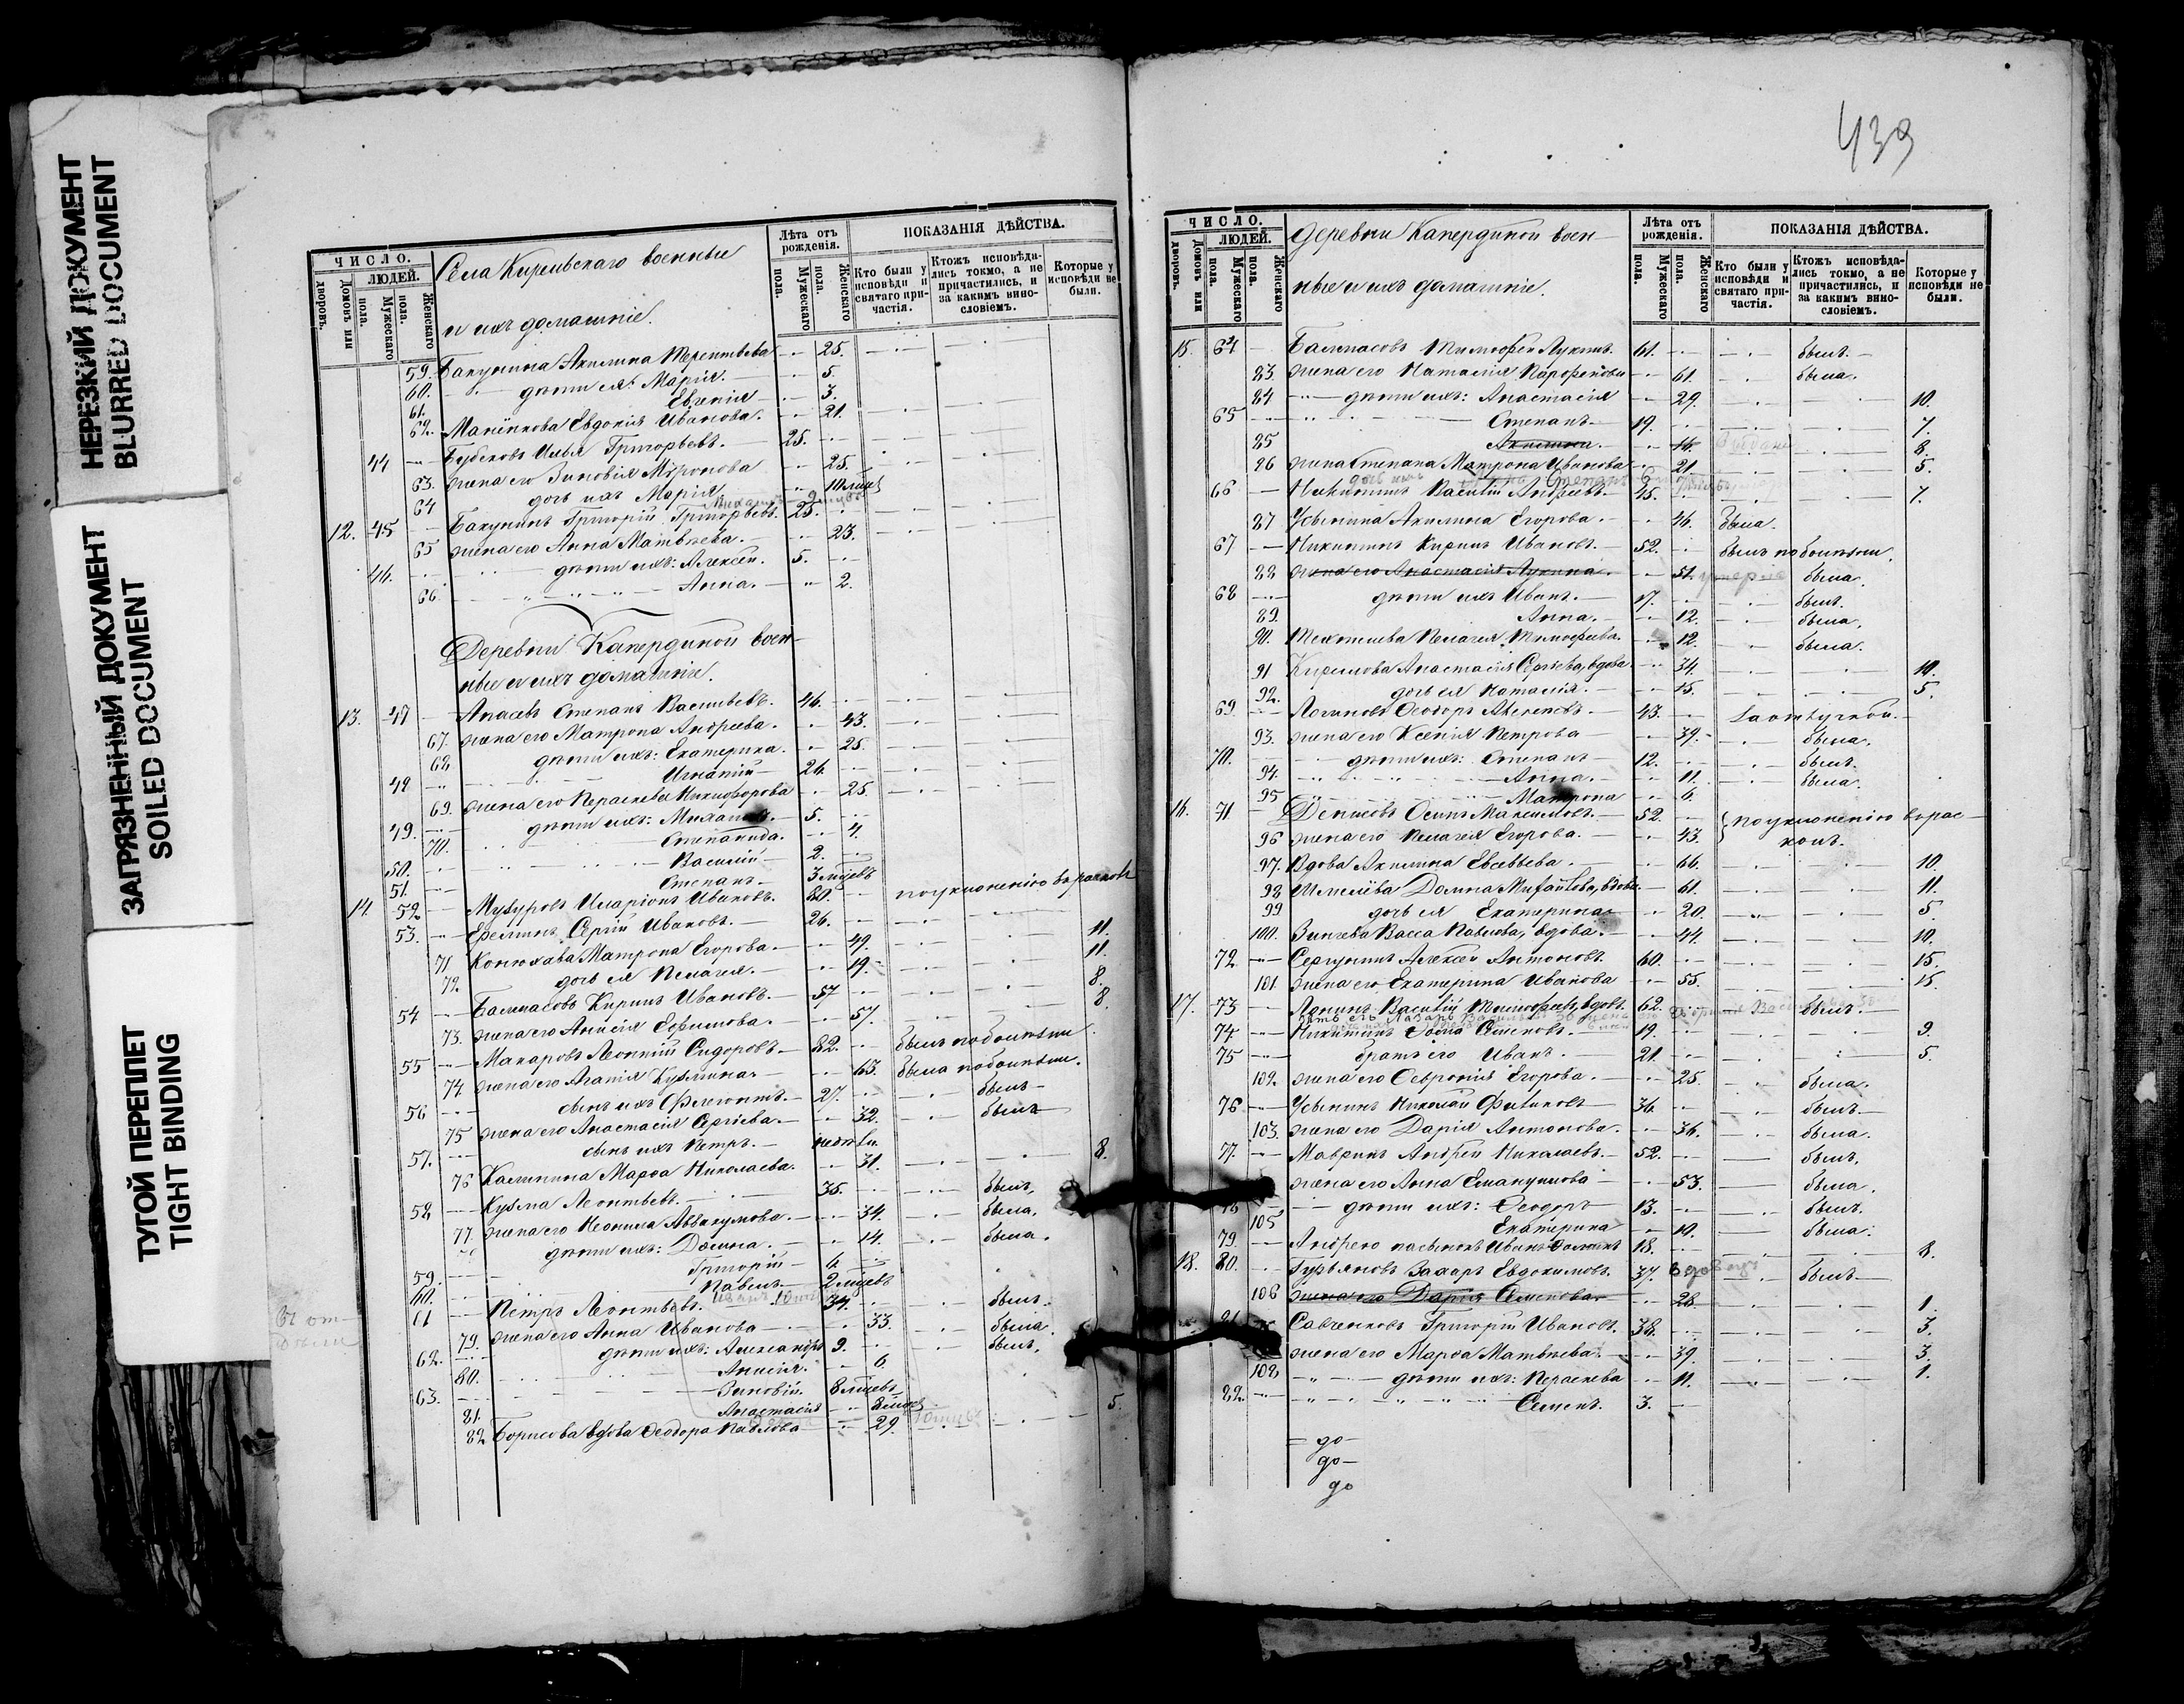 НЕРЕЗКИЙ ДОКУМЕНТ
BLURRED DOCUMENT
ЗАГРЯЗНЕННЫЙ ДОКУМЕНТ
SOILED DOCUMENT
ТУГОЙ ПЕРЕПЛЕТ
TIGHT BINDING
ЧИСЛО.
ЛЮДЕЙ.
Домовъ или дворовъ.
Мужескаго пола.
Женскаго пола.
Села военные
и ихъ домашніе.
Лѣта отъ рожденія.
Мужескаго пола.
Женскаго пола.
ПОКАЗАНІЯ ДѢЙСТВА.
Кто были у исповѣди и святаго причастія.
Ктожъ исповѣдались токмо, а не причастились, и за какимъ винословіемъ.
Которые у исповѣди не были.
59. Бакунина Акилина Терентьева 25.
60. дѣти ея: Марія. 5.
61. Евгенія 3.
62. Евдокія Иванова. 21.
44 Илья Григорьевъ. 25.
63. жена его Зиновія Миронова 25.
64 дочь ихъ Марія 10 мѣс
12. 45 Бакунинъ Григорій Григорьевъ. 25.
65 жена его Анна Матвѣева. 23.
46. дѣти ихъ: Алексѣй. 5.
66 Анна. 2.
Деревни Капердиной воен-
ные и ихъ домашніе.
13. 47 Степанъ Васильевъ. 46.
67. жена его Матрона Андреева. 43.
68 дѣти ихъ: Екатерина. 25.
48 Игнатій 26.
69. жена его Параскева Никифорова 25.
49. дѣти ихъ: Михаилъ. 5.
70. Степанида. 4.
50. Василій 2.
51. Степанъ 3 мѣсяцъ
14. 52 Иларіонъ Ивановъ. 80. по уклоненію въ расколъ
53. Ереминъ Сергій Ивановъ. 26.
71 Матрона Егорова. 49. 11.
72. дочь ея Пелагея. 19. 11.
54 Балмасовъ Кирилъ Ивановъ. 57 8.
73. жена его Анисія Ефимова. 57. 8.
55 Макаровъ Леонтій Сидоровъ. 82. былъ по болѣзни.
74. жена его Агапія Кузмина. 63. была по болѣзни.
56 сынъ ихъ Флегонтъ. 27. былъ
75 жена его Анастасія Сергіева. 32. былъ
57. сынъ ихъ Петръ.
76 Калинина Марѳа Николаева. 31. 8.
58 Кузма Леонтьевъ. 35. былъ.
77. жена его Неонила Аввакумова. 34. была.
дѣти ихъ: Домна. 14. была.
59. Григорій 4.
60. Павелъ 2 мѣсяцъ
61 Петръ Леонтьевъ. 34. былъ.
79. жена его Анна Иванова 33. была.
62. дѣти ихъ: Александръ 9. былъ.
80. Анисія. 6.
63. Зиновій. 8 мѣсяцъ
81. Анастасія
82 Борисова вдова Ѳеодора Павлова 29. 5.
439
ЧИСЛО.
ЛЮДЕЙ.
Домовъ или дворовъ.
Мужескаго пола.
Женскаго пола.
Деревни Капердиной воен-
ные и ихъ домашніе.
Лѣта отъ рожденія.
Мужескаго пола.
Женскаго пола.
ПОКАЗАНІЯ ДѢЙСТВА.
Кто были у исповѣди и святаго причастія.
Ктожъ исповѣдались токмо, а не причастились, и за какимъ винословіемъ.
Которые у исповѣди не были.
15. 64 Балмасовъ Тимофей Лукинъ. 61. былъ.
83. жена его Наталія Парфенова 61. была.
84 дѣти ихъ: Анастасія 29. 10.
65 Степанъ 19. 7.
85 Акилина. 16. 8.
86 жена Степана Матрона Иванова 21 5.
66 Никитинъ Василій Андреевъ. 45. 7.
87 Усынина Акилина Егорова. 46. была.
67 Никитинъ Кирилъ Ивановъ. 52. былъ по болѣзни.
88 жена его Анастасія Лукина. 51. была.
68 дѣти ихъ Иванъ. 17. былъ.
89. Анна. 12. была.
90. Пелагея Тимофеева. 12. была.
91 Кирилова Анастасія Сергѣева, вдова 34. 10.
92. дочь ея Наталія. 15. 5.
69. Логиновъ Ѳеодоръ 43. за отлучкой.
93. жена его Ксенія Петрова 39. была.
70. дѣти ихъ: Степанъ 12. былъ.
94. Анна. 11. была.
95 Матрона 6.
16. 71 Денисовъ Осипъ Максимовъ. 52. по уклоненію въ рас-
96 жена его Пелагея Егорова. 43. колъ.
97. Вдова Акилина Евсевьева. 66. 10.
98 Домна Михайлова, вдова. 61. 11.
99 дочь ея Екатерина 20. 5.
100. Васса Павлова, вдова. 44. 10.
72. Сергунинъ Алексѣй Антоновъ. 60. 15.
101 жена его Екатерина Иванова 55. 15.
17. 73 Василій Тимофеевъ, вдовъ. 62. былъ.
74 Никитинъ Ѳома Семеновъ. 19. 9.
75 братъ его Иванъ. 21. 5.
102. жена его Февронія Егорова. 25. была.
76. Усынинъ Николай 36. былъ
103. жена его Дарія Антонова. 36. была.
77. Мавринъ Андрей Николаевъ. 52. былъ.
жена его Анна Емануилова 53. была.
78 дѣти ихъ: Ѳеодоръ 13. былъ.
105 Екатерина 10. была.
79. Андрею пасынокъ Иванъ 18. 8.
18. 80. Гурьяновъ Захаръ Евдокимовъ. 37. вдовецъ былъ
106 жена его Дарія Семенова 28 1.
81 Савченковъ Григорій Ивановъ. 38. 3.
жена его Марѳа Матвѣева. 39. 3.
108 дѣти ихъ: Параскева 11. 1.
82. Семенъ. 3.
до
до
до